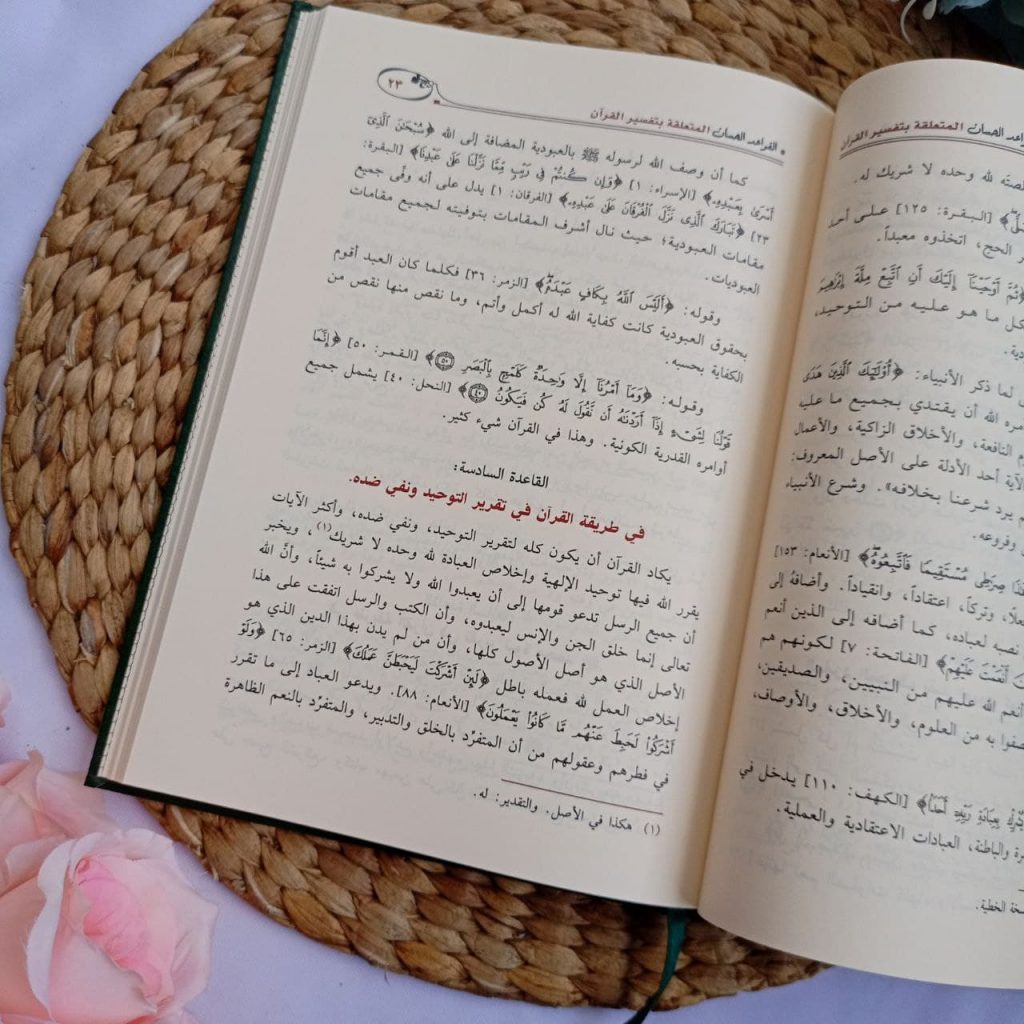 الحسان المتعلقة بتفسير القرآن
لله وحده لا شريك له.
[البقرة: ١٢٥] على أحد
الحج، اتخذوه معبداً.
﴿ثُمَّ أَوْحَيْنَا إِلَيْكَ أَنِ اتَّبِعْ مِلَّةَ إِبْرَاهِيمَ
كل ما هو عليه من التوحيد،
لما ذكر الأنبياء: ﴿أُوْلَٰئِكَ الَّذِينَ هَدَى
الله أن يقتدي بجميع ما عليه
النافعة، والأخلاق الزاكية، والأعمال
الآية أحد الأدلة على الأصل المعروف:
يرد شرعنا بخلافه». وشرع الأنبياء
وفروعه.
صِرَاطِي مُسْتَقِيمًا فَاتَّبِعُوهُ﴾ [الأنعام: ١٥٣]
وتركاً، اعتقاداً، وانقياداً. وأضافهُ إلى
نصبه لعباده، كما أضافه إلى الذين أنعم
أَنْعَمْتَ عَلَيْهِمْ﴾ [الفاتحة: ٧] لكونهم هم
أنعم الله عليهم من النبيين، والصديقين،
به من العلوم، والأخلاق، والأوصاف،
بِعِبَادَةِ رَبِّهِ أَحَدًا﴾ [الكهف: ١١٠] يدخل في
والباطنة، العبادات الاعتقادية والعملية.
الخطية.
* القواعد الحسان المتعلقة بتفسير القرآن
٢٣
كما أن وصف الله لرسوله ﷺ بالعبودية المضافة إلى الله ﴿سُبْحَٰنَ الَّذِي
أَسْرَىٰ بِعَبْدِهِ﴾ [الإسراء: ١] ﴿وَإِن كُنتُمْ فِي رَيْبٍ مِّمَّا نَزَّلْنَا عَلَىٰ عَبْدِنَا﴾ [البقرة:
٢٣] ﴿تَبَارَكَ الَّذِي نَزَّلَ الْفُرْقَانَ عَلَىٰ عَبْدِهِ﴾ [الفرقان: ١] يدل على أنه وفّى جميع
مقامات العبودية؛ حيث نال أشرف المقامات بتوفيته لجميع مقامات
العبوديات.
وقوله: ﴿أَلَيْسَ اللَّهُ بِكَافٍ عَبْدَهُ﴾ [الزمر: ٣٦] فكلما كان العبد أقوم
بحقوق العبودية كانت كفاية الله له أكمل وأتم، وما نقص منها نقص من
الكفاية بحسبه.
وقوله: ﴿وَمَا أَمْرُنَا إِلَّا وَٰحِدَةٌ كَلَمْحٍ بِالْبَصَرِ ۝٥٠﴾ [القمر: ٥٠] ﴿إِنَّمَا
قَوْلُنَا لِشَيْءٍ إِذَا أَرَدْنَٰهُ أَن نَّقُولَ لَهُ كُن فَيَكُونُ ۝٤٠﴾ [النحل: ٤٠] يشمل جميع
أوامره القدرية الكونية. وهذا في القرآن شيء كثير.
القاعدة السادسة:
في طريقة القرآن في تقرير التوحيد ونفي ضده.
يكاد القرآن أن يكون كله لتقرير التوحيد، ونفي ضده، وأكثر الآيات
يقرر الله فيها توحيد الإلهية وإخلاص العبادة لله وحده لا شريك(١)، ويخبر
أن جميع الرسل تدعو قومها إلى أن يعبدوا الله ولا يشركوا به شيئاً، وأنَّ الله
تعالى إنما خلق الجن والإنس ليعبدوه، وأن الكتب والرسل اتفقت على هذا
الأصل الذي هو أصل الأصول كلها، وأن من لم يدن بهذا الدين الذي هو
إخلاص العمل لله فعمله باطل ﴿لَئِنْ أَشْرَكْتَ لَيَحْبَطَنَّ عَمَلُكَ﴾ [الزمر: ٦٥] ﴿وَلَوْ
أَشْرَكُوا لَحَبِطَ عَنْهُم مَّا كَانُوا يَعْمَلُونَ﴾ [الأنعام: ٨٨]. ويدعو العباد إلى ما تقرر
في فطرهم وعقولهم من أن المتفرد بالخلق والتدبير، والمتفرِّد بالنعم الظاهرة
(١) هكذا في الأصل. والتقدير: له.